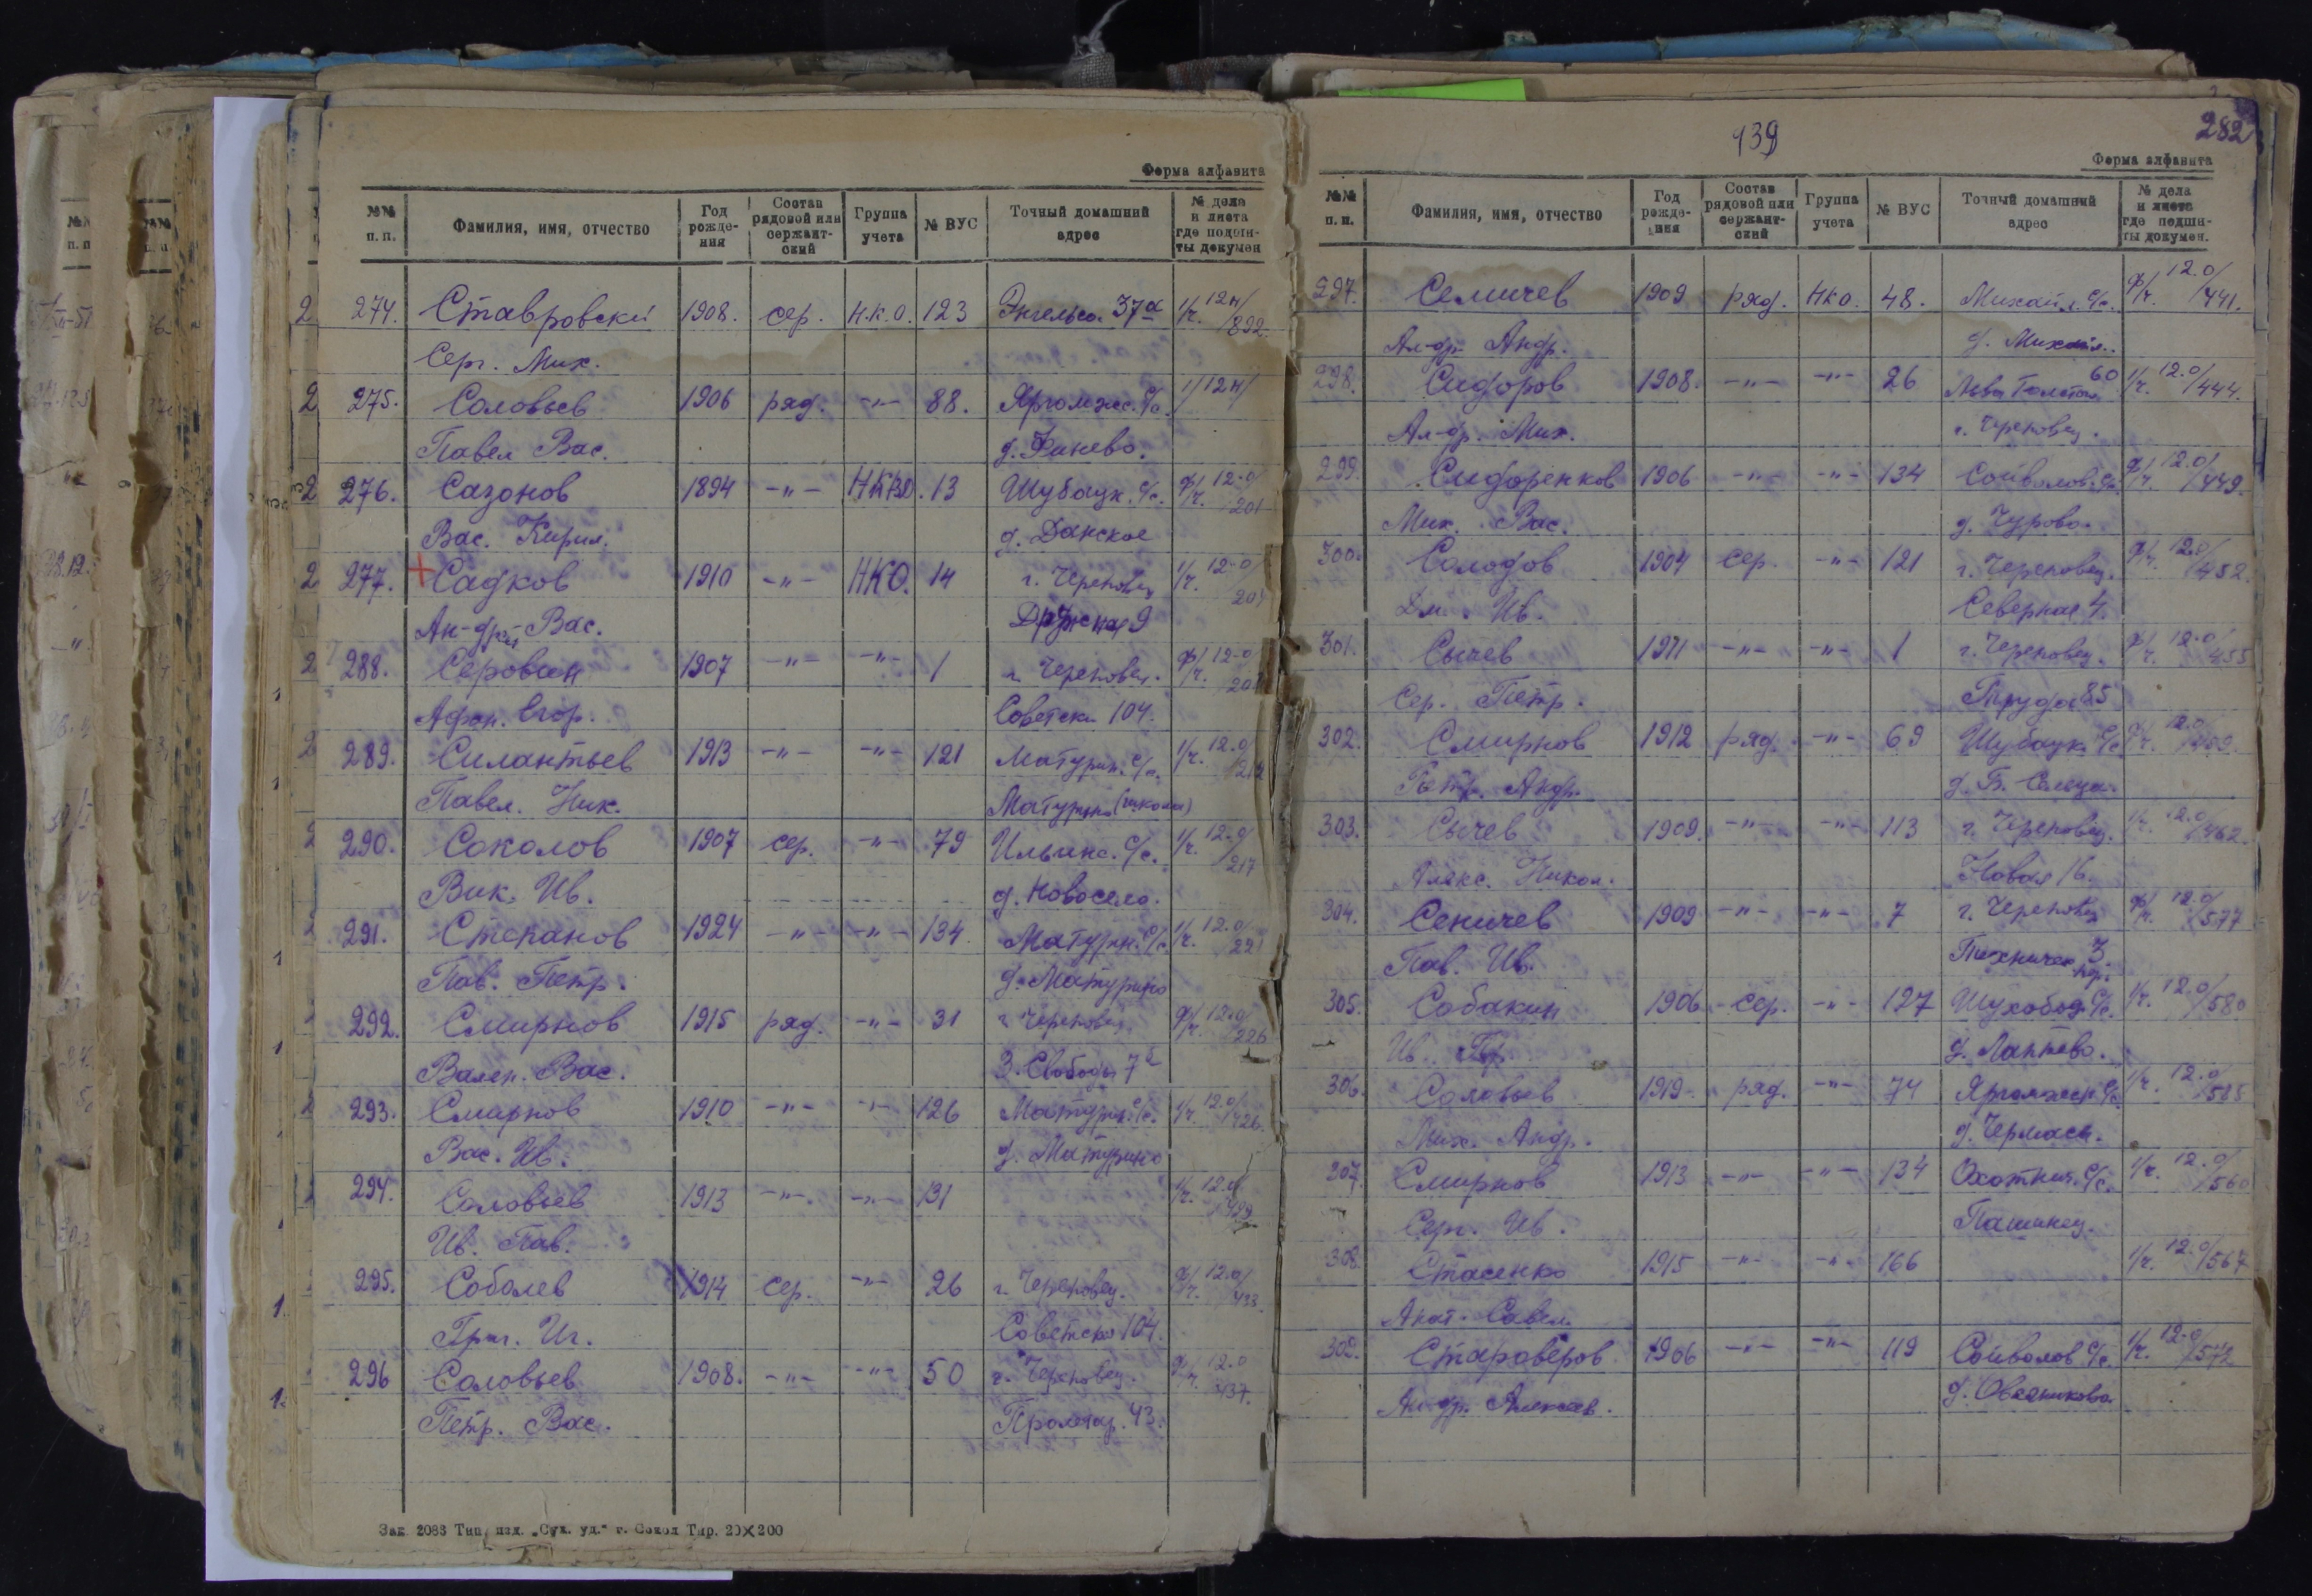 Форма алфавита
№№ п. п. Фамилия, имя, отчество Год рожде-ния Состав рядовой или сержант-ский Группа учета № ВУС Точный домашний адрес № дела и листа где подши-ты докумен
274. Ставровски 1908. сер. Н.К.О. 123 Энгельса. 37а 1/ч. 12н/892.
Серг. Мих.
275. Соловьев 1906 ряд. -"- 88. Яргомжс. С/с. 1/12н/
Павел Вас. д. Фанево.
276. Сазонов 1894 -"- 13 Шубацк. С/с. Ф/ч. 12-0/201
Вас. Кирил. д. Данское
277. Садков 1910 -"- НКО. 14 г. Череповец 1/ч. 12-0/
Ан-дрей Вас. Дружная 9
288. Серовин 1907 -"- -"- 1 г. Череповец. Ф/ч. 12-0
Афон. Егор. Советск. 104.
289. Силантьев 1913 -"- -"- 121 Матурин. С/с. 1/ч. 12.0/
Павел. Ник. Матурино (школа)
290. Соколов 1907 сер. -"- 79 Ильинс. С/с. 1/ч. 12.0/217
Вик. Ив. д. Новосела.
291. Степанов 1924 -"- -"- 134. Матурин. С/с. 1/ч. 12.0/221
Пав. Петр. д. Матурино
292. Смирнов 1915 ряд. -"- 31 г. Череповец. Ф/ч. 12.0/226
Вален. Вас. З. Свободы 7
293. Смирнов 1910 -"- -"- 126 Матурин. С/с. 1/ч. 12.0/426.
Вас. Ив. д. Матурино
294. Соловьев 1913 -"- -"- 131 1/ч. 12.0/429
Ив. Пав.
295. Соболев 1914 сер. -"- 26 г. Череповец. Ф/ч. 12.0/433.
Григ. Иг. Советская 104.
296 Соловьев 1908. -"- -"- 50 г. Череповец. Ф/ч. 12.0 437.
Петр. Вас. Пролетар. 43.
Зак 2088 Тип. изд. „Сух. уд.“ г. Сокол Тир. 20×200
139
282
Форма алфавита
№№ п. п. Фамилия, имя, отчество Год рожде-ния Состав рядовой или сержант-ский Группа учета № ВУС Точный домашний адрес № дела и листа где подши-ты докумен.
297. Семичев 1909 ряд. НКО. 48. Михайл. С/с. Ф/ч. 12.0/441.
Ал-др. Андр. д. Михайл.
298. Сидоров 1908. -"- -"- 26 Льва Толстого 60 1/ч. 12.0/444.
Ал-др. Мих. г. Череповец.
299. Сидоренков 1906 -"- -"- 134 Сойволов. С/с. Ф/ч. 12.0/449.
Мих. Вас. д. Чурово.
300. Солодов 1904 сер. -"- 121 г. Череповец. Ф/ч. 12.0/452.
Дм. Ив. Северная 4.
301. Сычев 1911 -"- -"- 1 г. Череповец. Ф/ч. 12.0/455
Сер. Петр. Труда 85
302. Смирнов 1912 ряд. -"- 69 Шубацк. С/с Ф/ч. 12.0/459.
Петр. Андр. д. Б. Сельца.
303. Сычев 1909. -"- -"- 113 г. Череповец. 1/ч. 12.0/462.
Алекс. Никол. Новая 16.
304. Сеничев 1909 -"- -"- 7 г. Череповец Ф/ч. 12.0/577
Пав. Ив. Техничес. 3.
305. Собакин 1906 сер. -"- 127 Шухобод. С/с. 1/ч. 12.0/580
Ив. д. Лаптево.
306. Соловьев 1919 ряд. -"- 74 Яргомжск С/с. 1/ч. 12.0/585
Мих. Андр. д. Чермасы.
307. Смирнов 1913 -"- -"- 134 Охотнич. С/с. 1/ч. 12.0/560
Серг. Ив. Пашинец.
308. Стасенко 1915 -"- -"- 166 1/ч. 12.0/567
Анат. Савел.
302. Староверов 1906 -"- -"- 119 Сойволов С/с. 1/ч. 12.0/572
Ан-др. Алексев. д. Овсяникова.